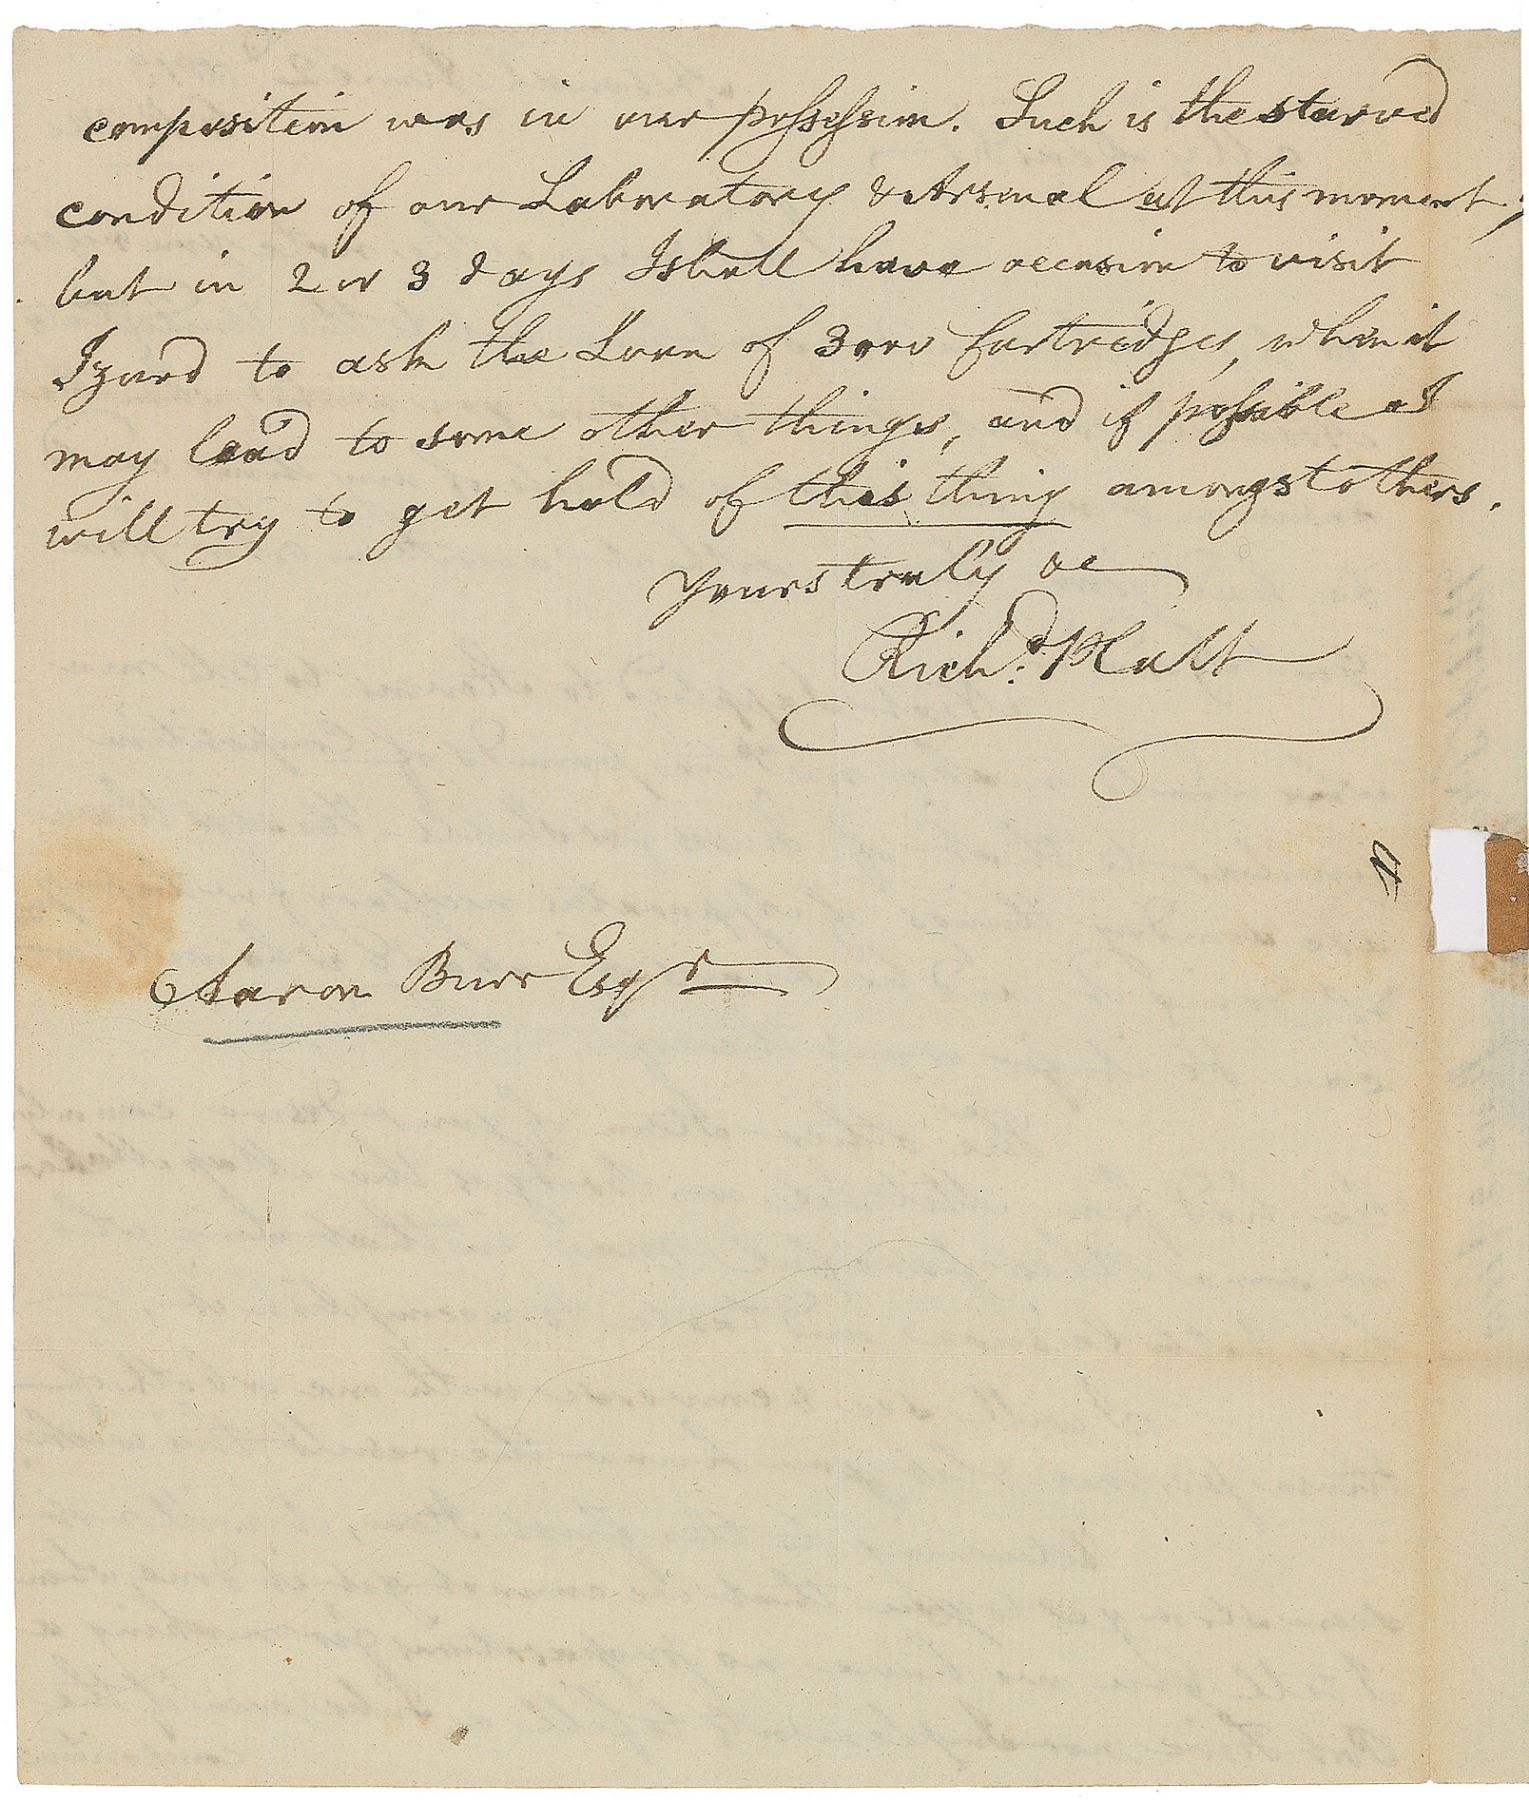 composition was in our possession. Such is the starved
condition of our Laboratory & Arsenal at this moment;
but in 2 or 3 days I shall have occasion to visit
Izard to ask the Loan of 3000 Cartridges, when it
may lead to some other things, and if possible I
will try to get hold of this thing amongst others.
Yours truly &c
Richd. Platt
Aaron Burr Esqr